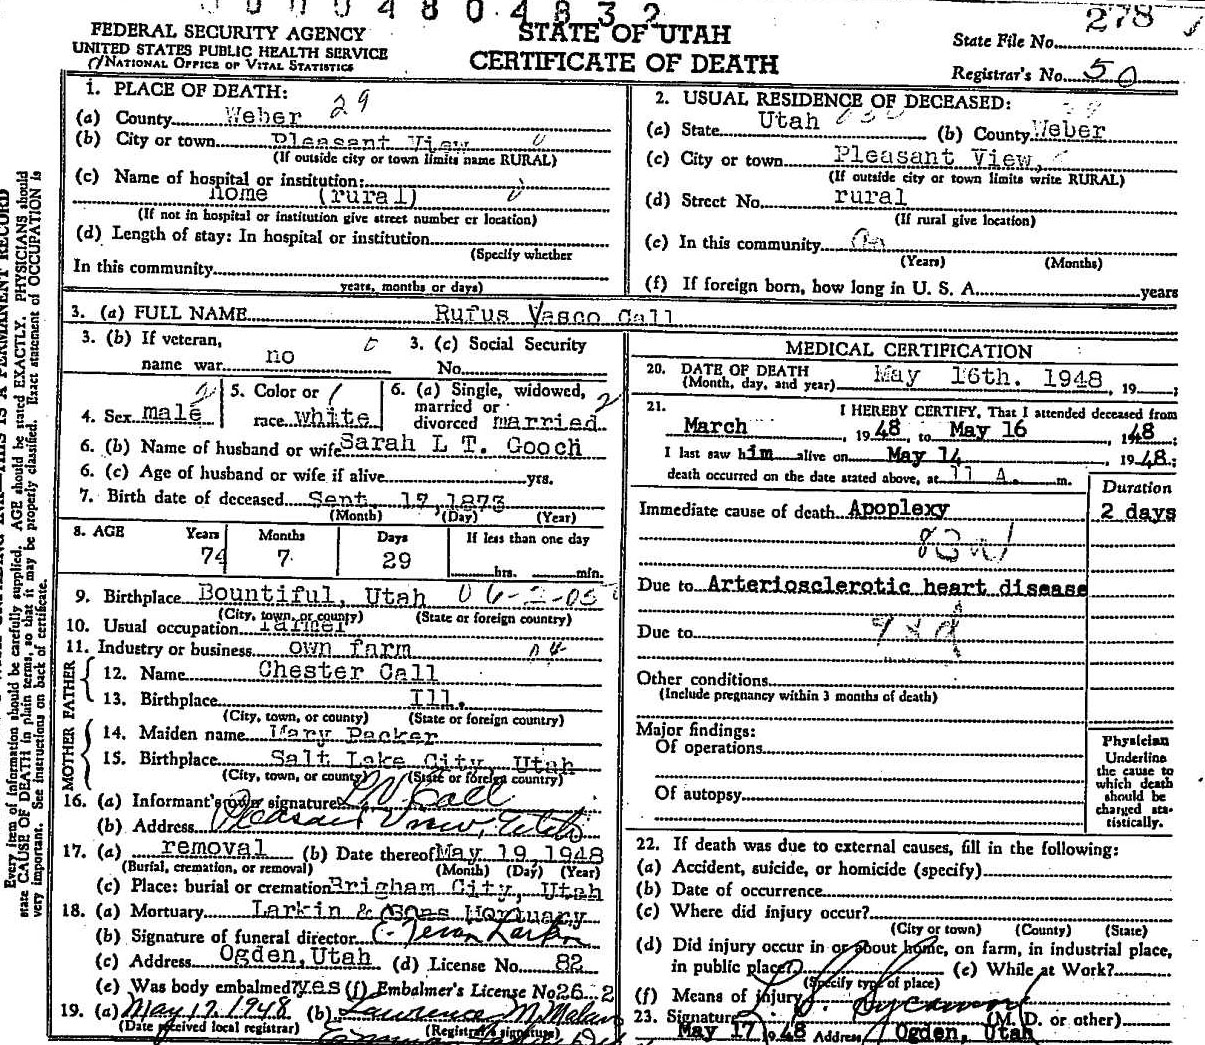 FEDERAL SECURITY AGENCY
UNITED STATES PUBLIC HEALTH SERVICE
NATIONAL OFFICE OF VITAL STATISTICS
STATE OF UTAH
CERTIFICATE OF DEATH
278
State File No.
Registrar's No. 50
1. PLACE OF DEATH:
29
(a) County Weber
(b) City or town Pleasant View
(If outside city or town limits name RURAL)
(c) Name of hospital or institution:
home (rural)
(If not in hospital or institution give street number or location)
(d) Length of stay: In hospital or institution
(Specify whether
In this community
years, months or days)
2. USUAL RESIDENCE OF DECEASED:
(a) State Utah (b) County Weber
(c) City or town Pleasant View,
(If outside city or town limits write RURAL)
(d) Street No. rural
(If rural give location)
(e) In this community
(Years) (Months)
(f) If foreign born, how long in U. S. A. years
3. (a) FULL NAME Rufus Vasco Call
3. (b) If veteran,
name war no
3. (c) Social Security
No.
4. Sex male
5. Color or
race white
6. (a) Single, widowed,
married or
divorced married
6. (b) Name of husband or wife Sarah L T. Gooch
6. (c) Age of husband or wife if alive yrs.
7. Birth date of deceased Sept. 17, 1873
(Month) (Day) (Year)
8. AGE Years Months Days If less than one day
74 7 29 hrs. min.
9. Birthplace Bountiful, Utah
(City, town, or county) (State or foreign country)
10. Usual occupation farmer
11. Industry or business own farm
FATHER
12. Name Chester Call
13. Birthplace Ill.
(City, town, or county) (State or foreign country)
MOTHER
14. Maiden name Mary Packer
15. Birthplace Salt Lake City, Utah
(City, town, or county) (State or foreign country)
16. (a) Informant's own signature Call
(b) Address Pleasant View, Utah
17. (a) removal (b) Date thereof May 19, 1948
(Burial, cremation, or removal) (Month) (Day) (Year)
(c) Place: burial or cremation Brigham City, Utah
18. (a) Mortuary Larkin & Sons Mortuary
(b) Signature of funeral director Larkin
(c) Address Ogden, Utah (d) License No. 82
(e) Was body embalmed? yes (f) Embalmer's License No. 26 2
19. (a) May 17, 1948 (b) Lawrence M. Malan
(Date received local registrar) (Registrar's signature)
MEDICAL CERTIFICATION
20. DATE OF DEATH
(Month, day, and year) May 16th. 1948, 19 ;
21. I HEREBY CERTIFY, That I attended deceased from
March, 19 48, to May 16, 1948;
I last saw him alive on May 14, 19 48;
death occurred on the date stated above, at 11 A. m.
Duration
Immediate cause of death Apoplexy 2 days
Due to Arteriosclerotic heart disease
Due to
Other conditions
(Include pregnancy within 3 months of death)
Major findings:
Of operations
Of autopsy
Physician
Underline
the cause to
which death
should be
charged sta-
tistically.
22. If death was due to external causes, fill in the following:
(a) Accident, suicide, or homicide (specify)
(b) Date of occurrence
(c) Where did injury occur?
(City or town) (County) (State)
(d) Did injury occur in or about home, on farm, in industrial place,
in public place? (e) While at Work?
(Specify type of place)
(f) Means of injury
23. Signature (M. D. or other)
May 17, 1948 Address Ogden, Utah
Every item of information should be carefully supplied. AGE should be stated EXACTLY. PHYSICIANS should
state CAUSE OF DEATH in plain terms, so that it may be properly classified. Exact statement of OCCUPATION is
very important. See instructions on back of certificate.